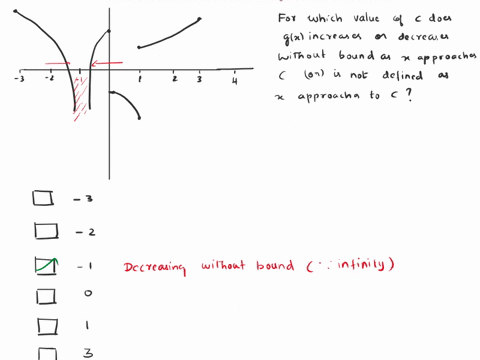 For which value of c does
g(x) increases or decreases
without bound as x approaches
C (or) is not defined as
x approaches to c ?
-3 -2 -1 1 2 3 4
-3
-2
-1 Decreasing without bound (∵ infinity)
0
1
3